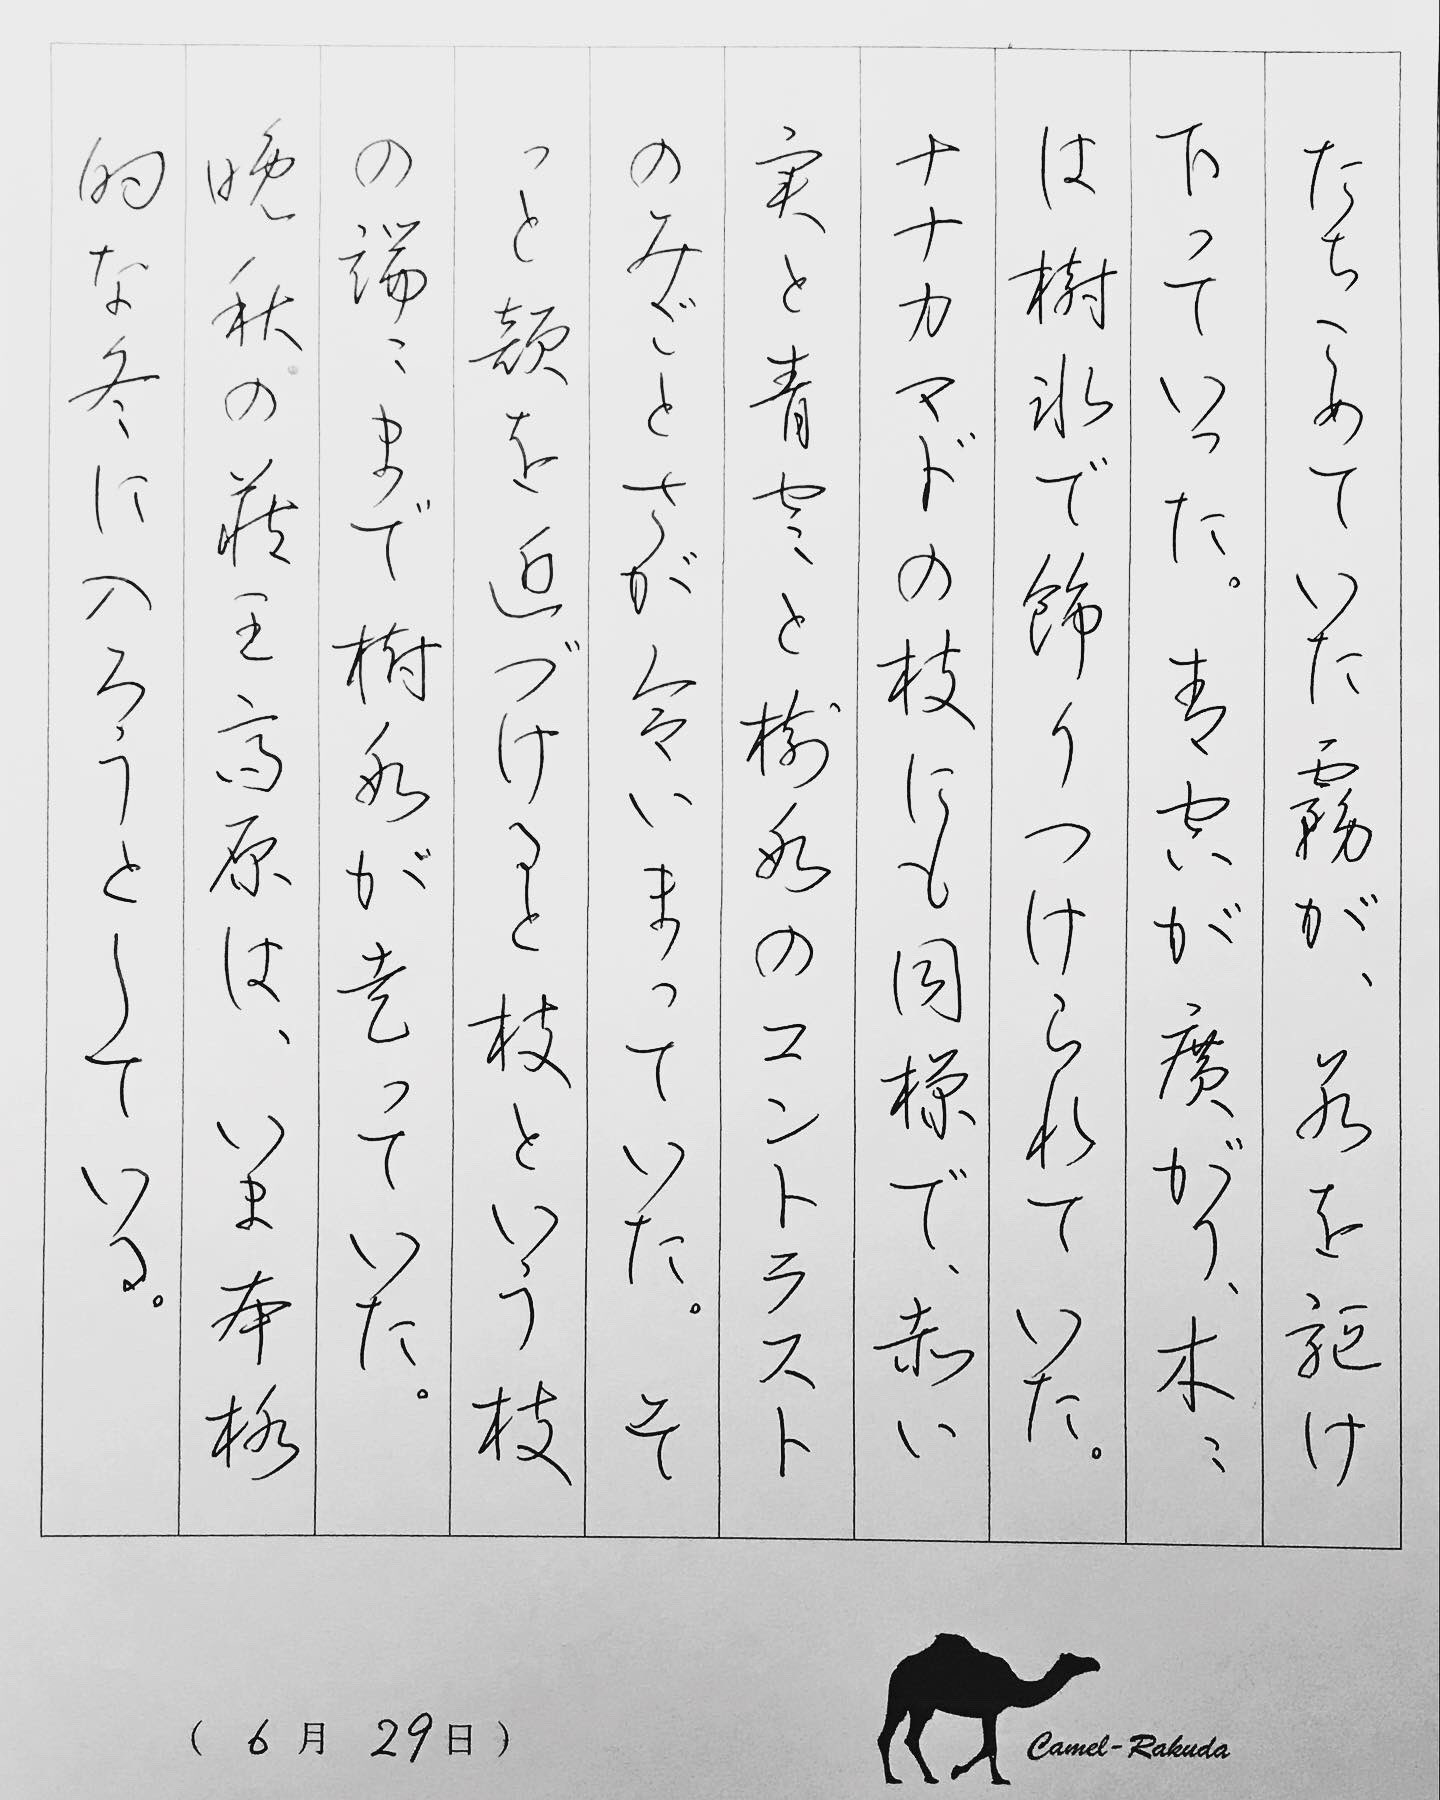 たちこめていた霧が、谷を駆け
下っていった。青空が廣がり、木々
は樹氷で飾りつけられていた。
ナナカマドの枝にも同様で、赤い
実と青空と樹氷のコントラスト
のみごとさが冷いまっていた。そ
っと顔を近づけると枝という枝
の端々まで樹氷が走っていた。
晩秋の蔵王高原は、いま本格
的な冬に入ろうとしている。
(6月29日)
Camel-Rakuda